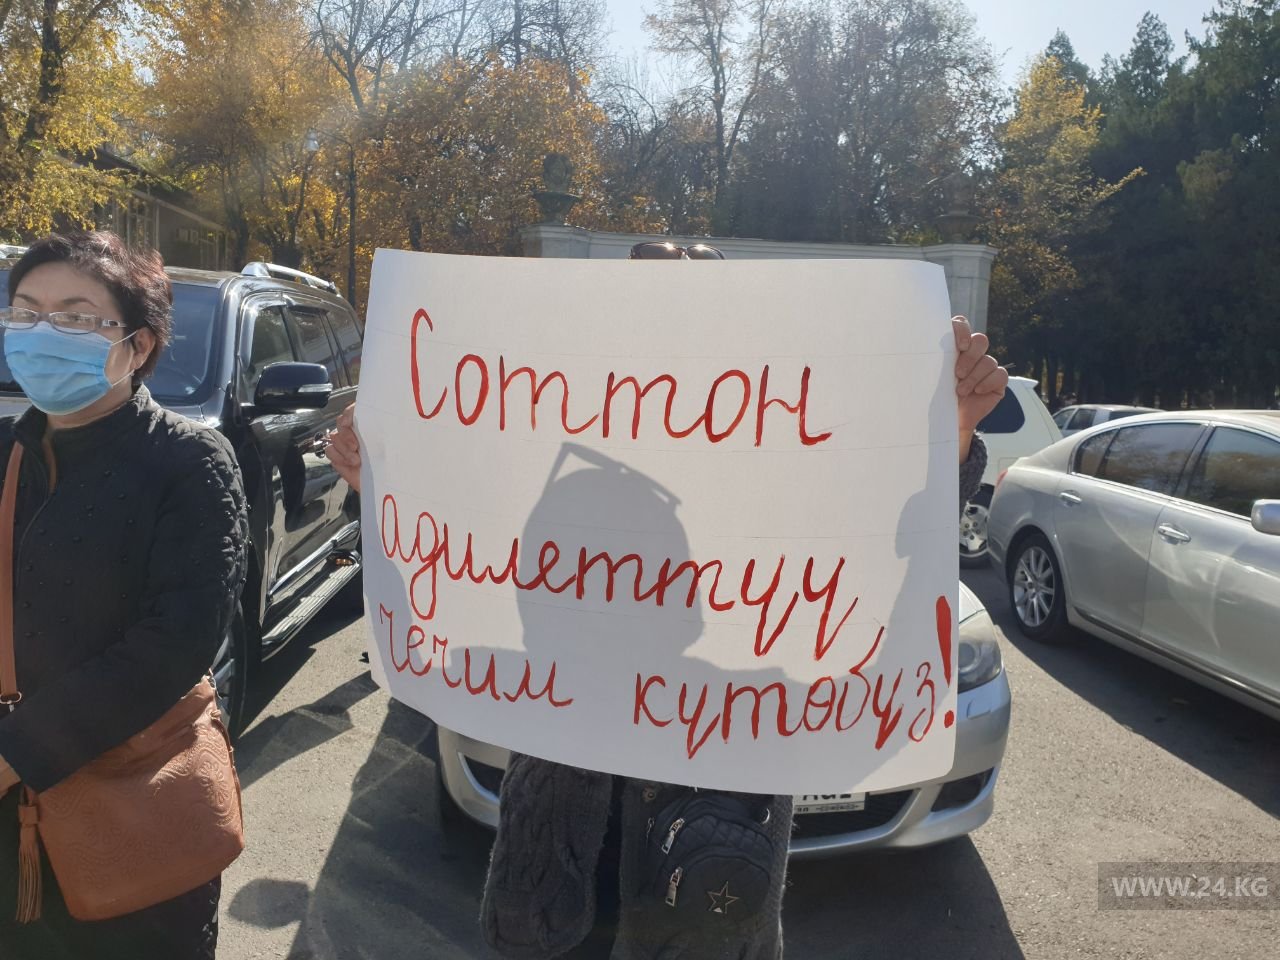 Соттон
адилеттүү
чечим күтөбүз!
WWW.24.KG